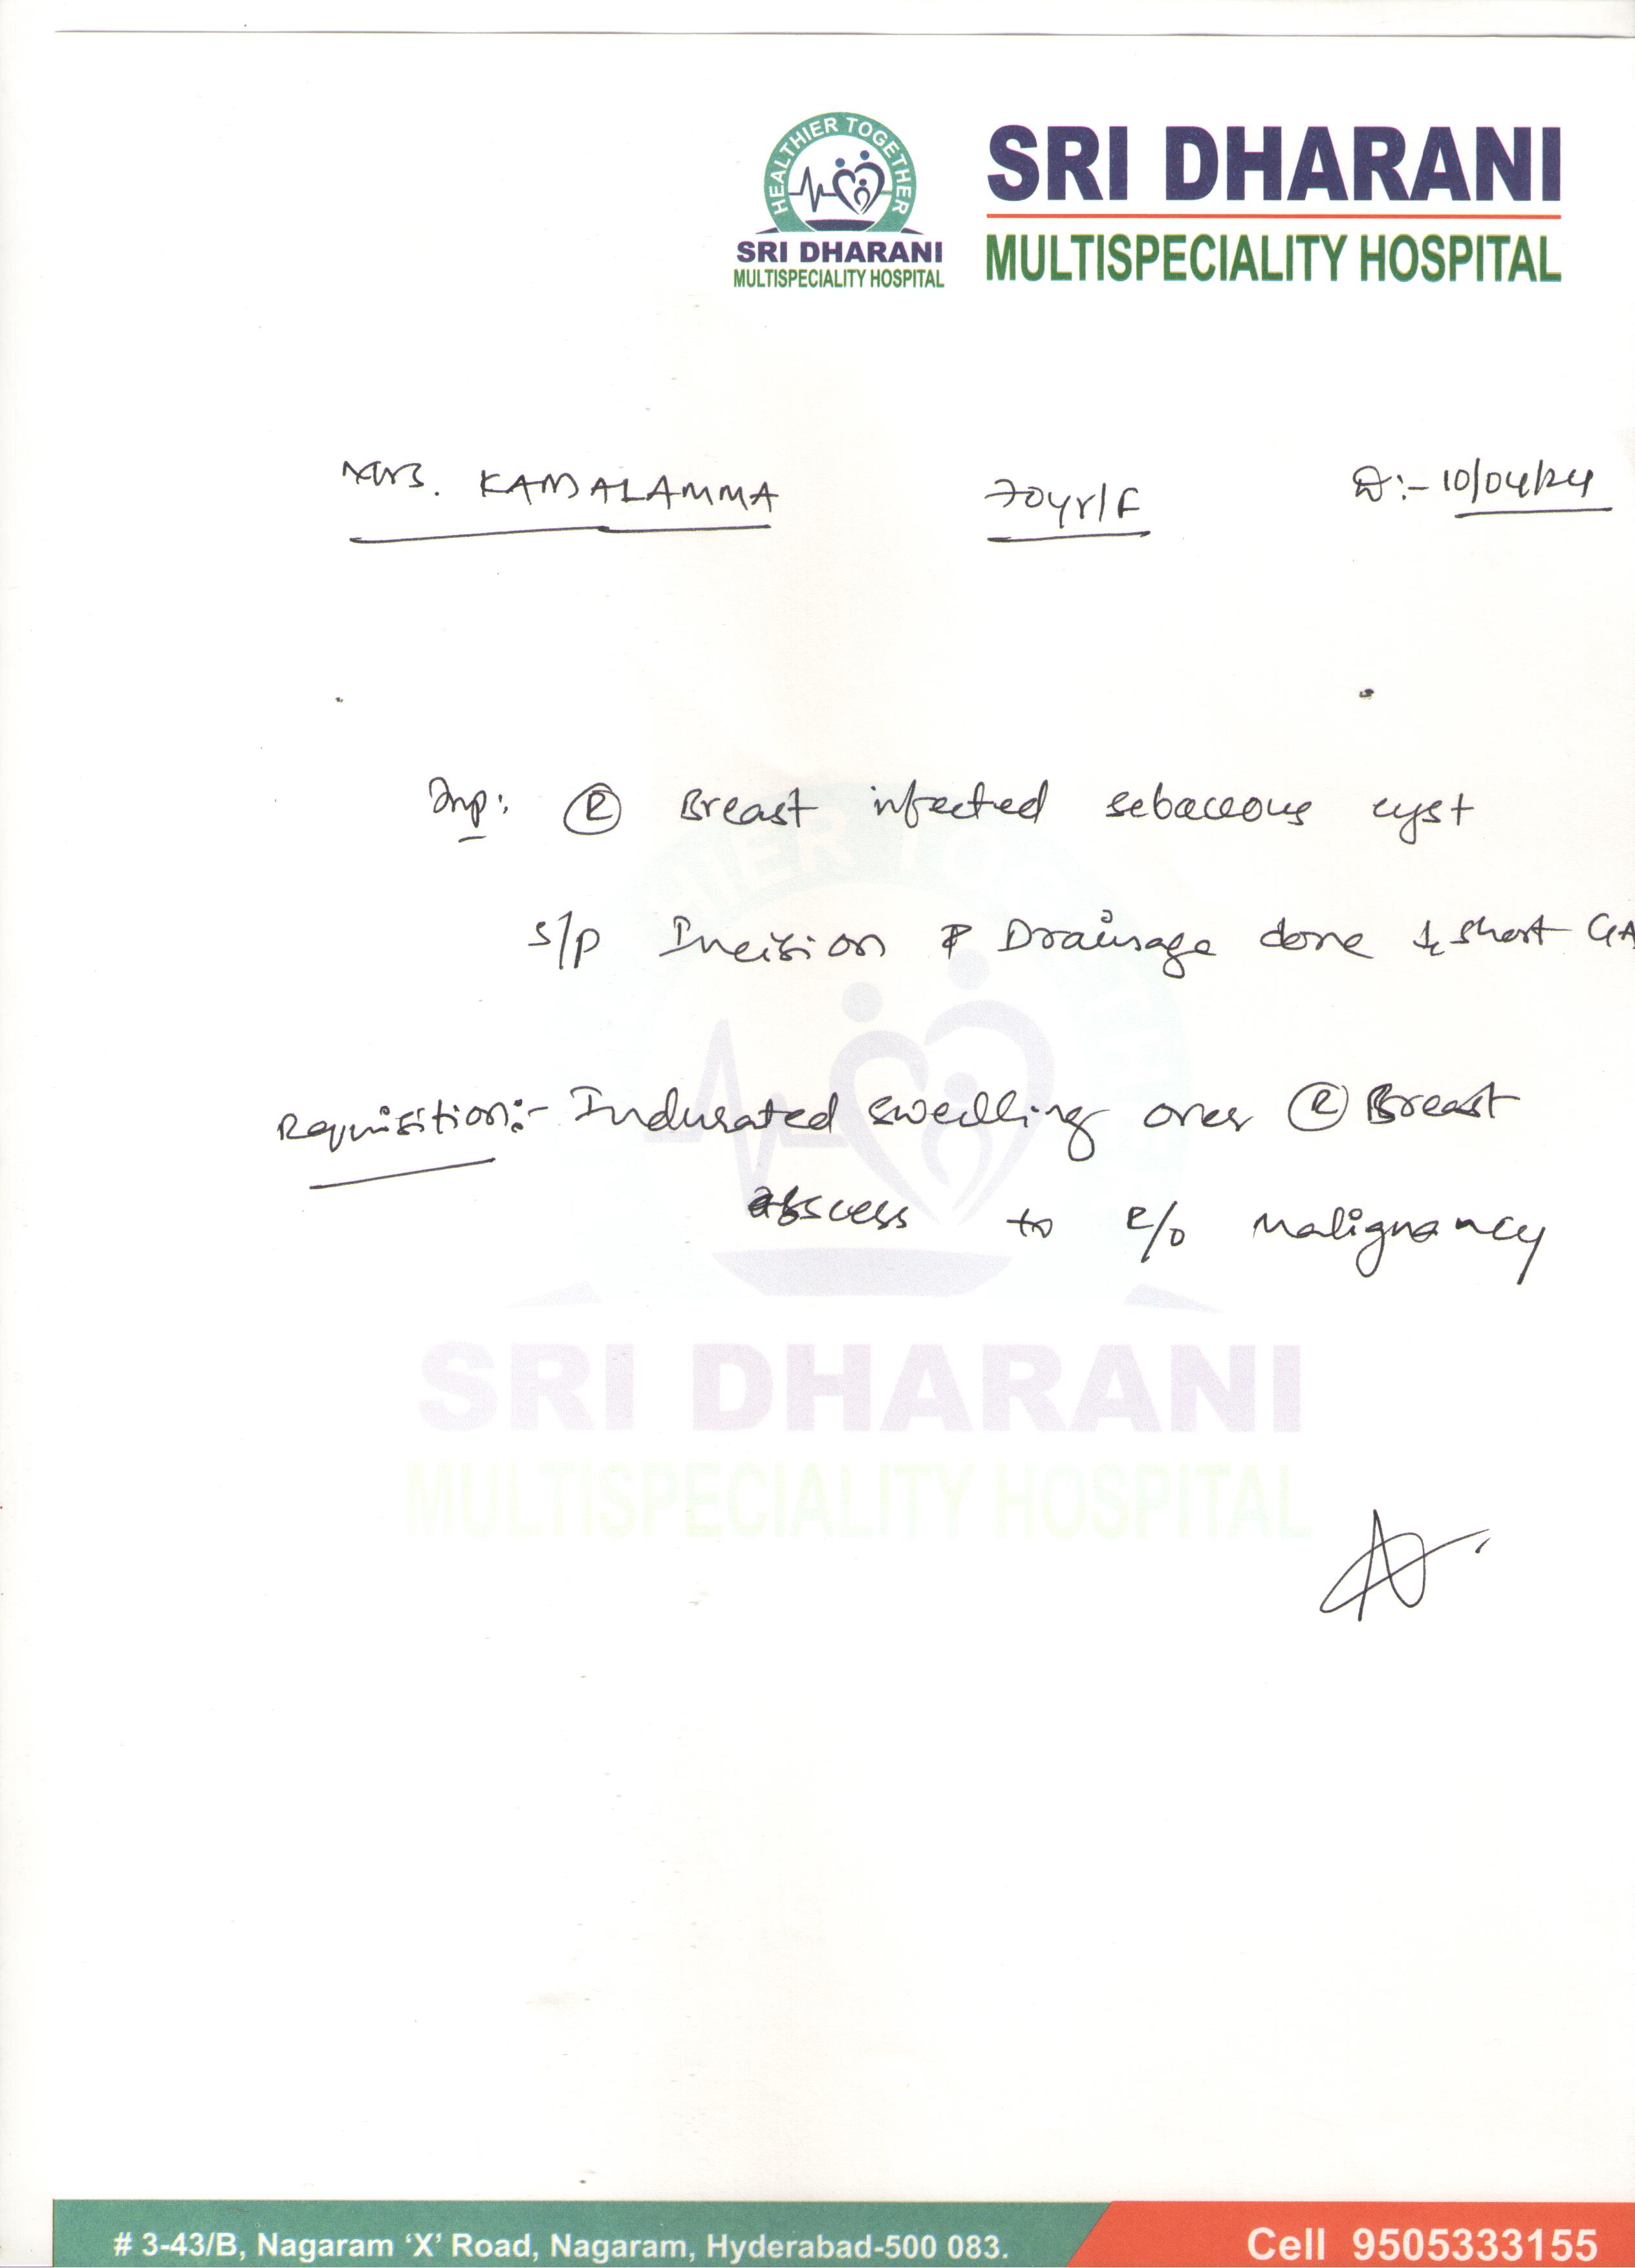 HEALTHIER TOGETHER
SRI DHARANI
MULTISPECIALITY HOSPITAL
SRI DHARANI
MULTISPECIALITY HOSPITAL
Mrs. KAMALAMMA 70yr/F D:- 10/04/24
Imp: Ⓡ Breast infected sebaceous cyst
S/p Incision & Drainage done short GA
Requisition:- Indurated swelling over Ⓡ Breast
abscess to R/o Malignancy
SRI DHARANI
MULTISPECIALITY HOSPITAL
# 3-43/B, Nagaram ‘X’ Road, Nagaram, Hyderabad-500 083. Cell 9505333155